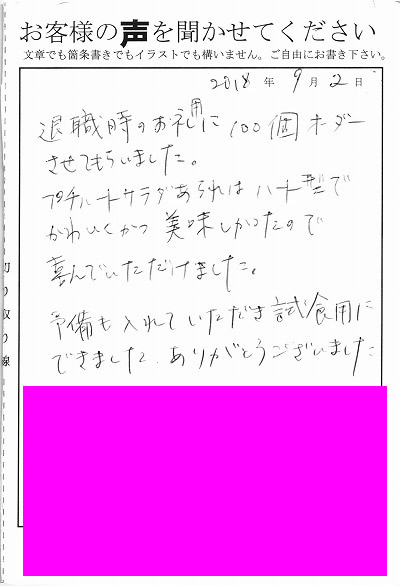 お客様の声を聞かせてください
文章でも箇条書きでもイラストでも構いません。ご自由にお書き下さい。
2018年9月2日
退職時のお礼用に100個オーダー
させてもらいました。
プチハートサラダあられはハート型で
かわいくかつ美味しかったので
喜んでいただけました。
予備も入れていただき試食用に
できました。ありがとうございました
切り取り線